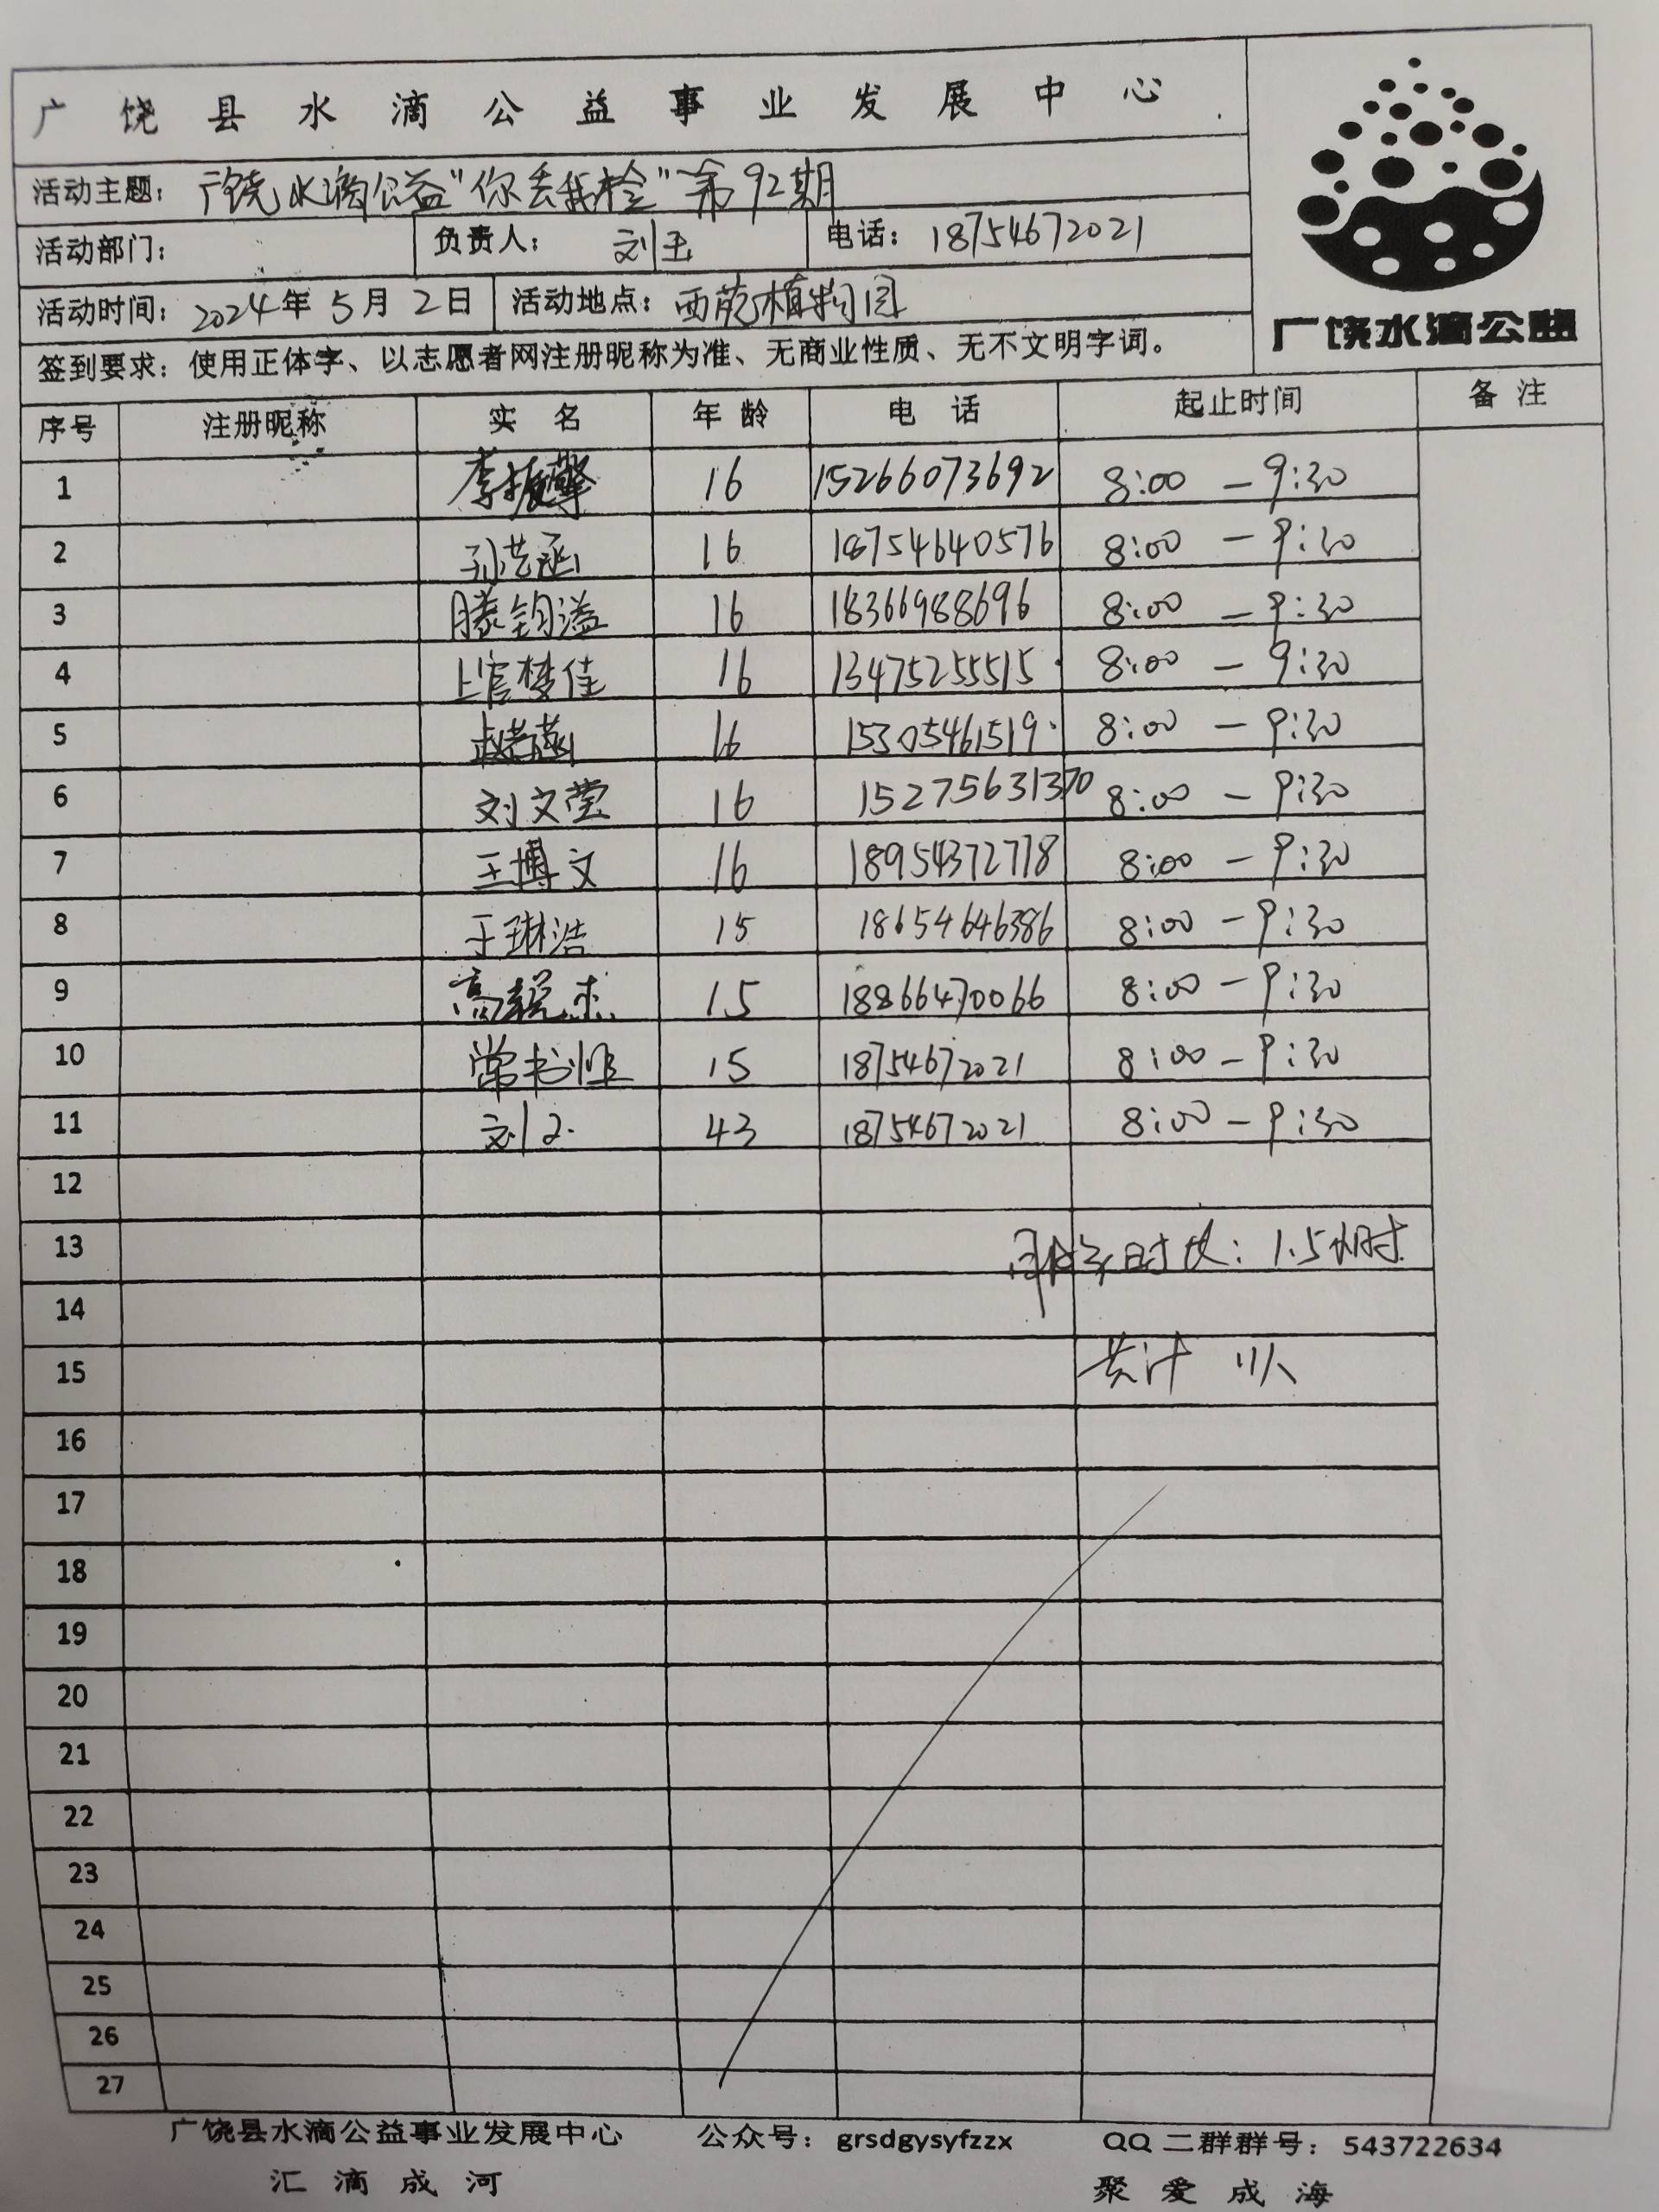 广饶县水滴公益事业发展中心
活动主题：广饶水滴公益“你丢我捡”第92期
活动部门： 负责人：刘玉 电话：18754672021
活动时间：2024年5月2日 活动地点：西苑植物园
广饶水滴公益
签到要求：使用正体字、以志愿者网注册昵称为准、无商业性质、无不文明字词。
序号 注册昵称 实名 年龄 电话 起止时间 备注
1 李振擎 16 15266073692 8:00 — 9:30
2 孙艺涵 16 18754640576 8:00 — 9:30
3 滕钧溢 16 18366988696 8:00 — 9:30
4 上官梦佳 16 13475255515 8:00 — 9:30
5 16 15305461519 8:00 — 9:30
6 刘文莹 16 15275631370 8:00 — 9:30
7 王博文 16 18954372778 8:00 — 9:30
8 于琳浩 15 18654646386 8:00 — 9:30
9 高 杰 15 18866470066 8:00 — 9:30
10 常书恒 15 18754672021 8:00 — 9:30
11 刘玉 43 18754672021 8:00 — 9:30
12
13 时长：1.5小时
14
15 共计 11人
16
17
18
19
20
21
22
23
24
25
26
27
广饶县水滴公益事业发展中心 公众号：grsdgysyfzzx QQ二群群号：543722634
汇滴成河 聚爱成海